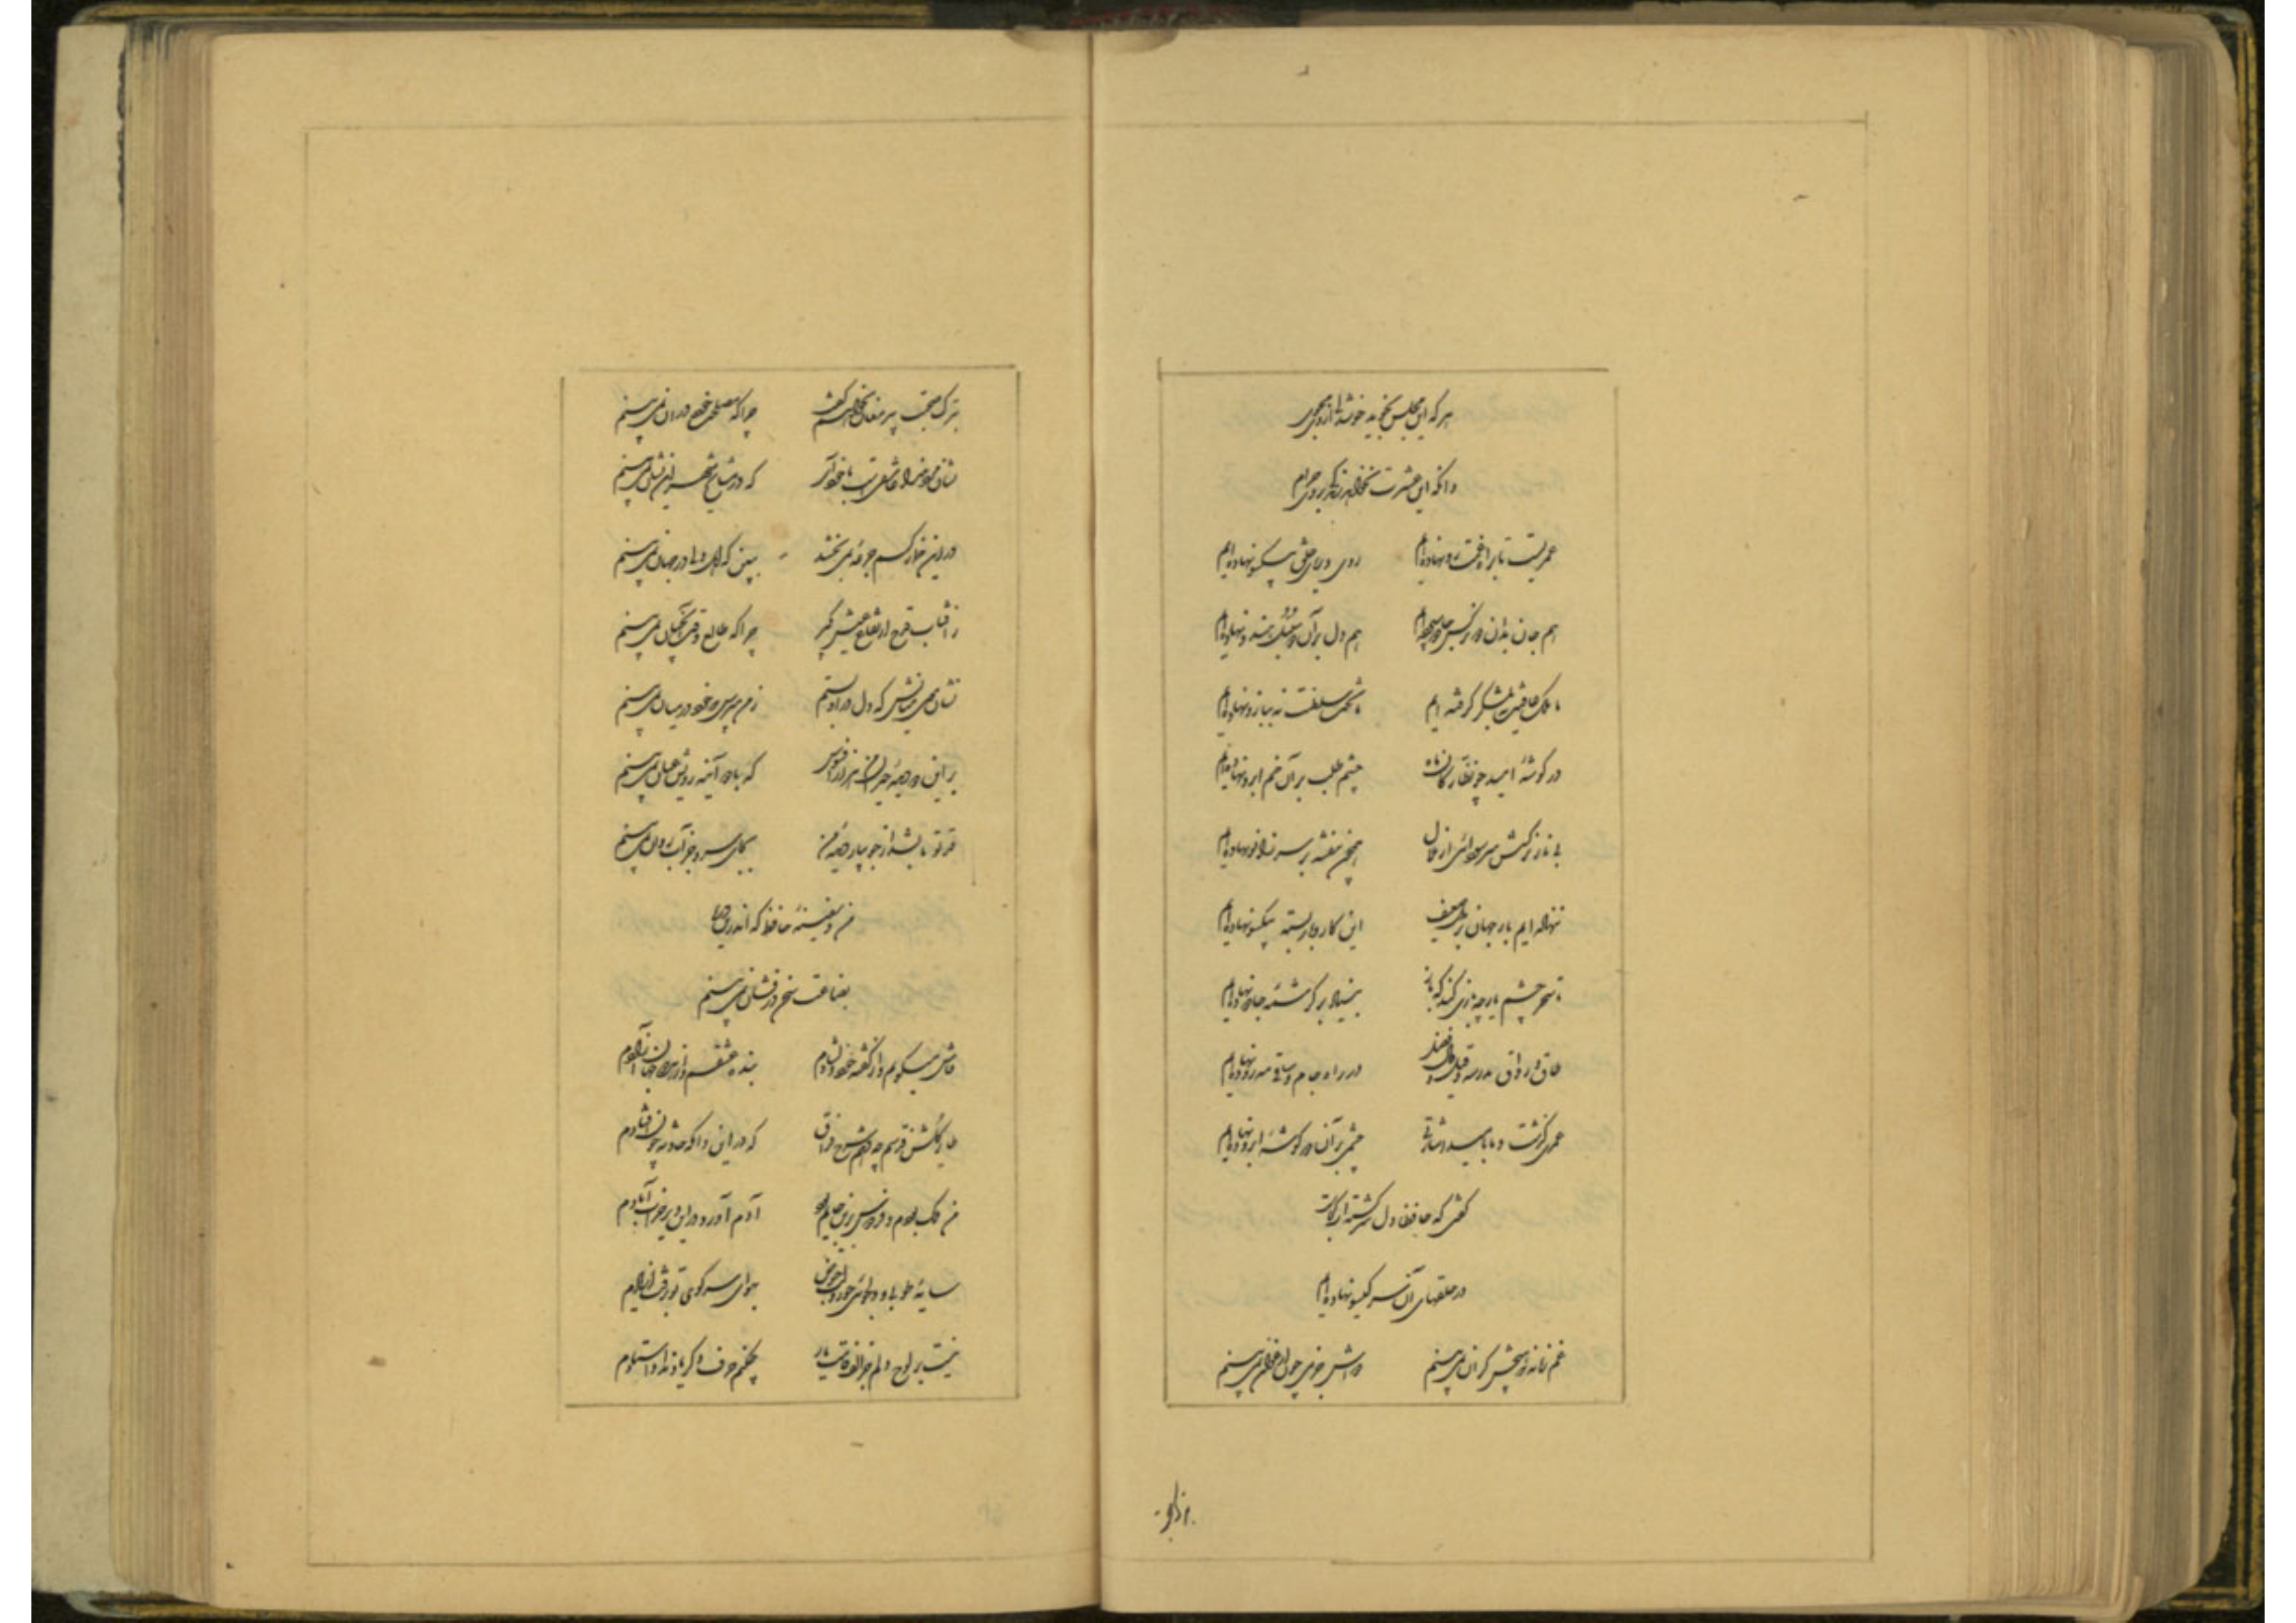 هر که این مجلس بخوید خوشدلی از وی مجوی
وانکه این عشرت نخواهد زندگی بر وی حرام
عمریست تا براه غمت رو نهاده‌ایم روی و ریای خلق بیکسو نهاده‌ایم
هم جان بدان دو نرگس جادو سپرده‌ایم هم دل بر آن دو سنبل هندو نهاده‌ایم
ما ملک عافیت نه بلشکر گرفته ایم ما تخت سلطنت نه ببازو نهاده‌ایم
در گوشهٔ امید چو نظارگان ماه چشم طلب بر آن خم ابرو نهاده‌ایم
بی ناز نرگسش سر سودائی از ملال همچون بنفشه بر سر زانو نهاده‌ایم
ننهاده ایم بار جهان بر دل ضعیف این کار و بار بسته بیکسو نهاده‌ایم
تا سحر چشم یار چه بازی کند که باز بنیاد بر کرشمهٔ جادو نهاده‌ایم
طاق و رواق مدرسه و قیل و قال فضل در راه جام و ساقی مه‌رو نهاده‌ایم
عمری گذشت و ما بامید اشارتی چشمی بر آن دو گوشهٔ ابرو نهاده‌ایم
گفتی که حافظا دل سرگشته‌ات کجاست
در حلقهای آن سر گیسو نهاده‌ایم
غم زمانه که هیچش کران نمی‌بینم دواش جز می چون ارغوان نمی‌بینم
بترک صحبت پیر مغان نخواهم گفت چرا که مصلحت خود در آن نمی‌بینم
نشان مرد خدا عاشقیست با خود آر که در مشایخ شهر این نشان نمی‌بینم
در این خمار کسم جرعه نمی‌بخشد ببین که اهل دلی در جهان نمی‌بینم
ز آفتاب قدح ارتفاع عیش بگیر چرا که طالع وقت آنچنان نمی‌بینم
نشان موی میانش که دل در او بستم ز من مپرس که خود در میان نمی‌بینم
بر این دو دیدهٔ حیران من هزار افسوس که با دو آینه رویش عیان نمی‌بینم
قد تو تا بشد از جویبار دیدهٔ من بجای سرو جز آب روان نمی‌بینم
من و سفینهٔ حافظ که اندرین دریا
بضاعت سخن درفشان نمی‌بینم
فاش میگویم و از گفته خود دلشادم بندهٔ عشقم و از هر دو جهان آزادم
طایر گلشن قدسم چه دهم شرح فراق که در این دامگه حادثه چون افتادم
من ملک بودم و فردوس برین جایم بود آدم آورد در این دیر خراب آبادم
سایهٔ طوبا و دلجوئی حور و لب حوض بهوای سر کوی تو برفت از یادم
نیست بر لوح دلم جز الف قامت یار چکنم حرف دگر یاد نداد استادم